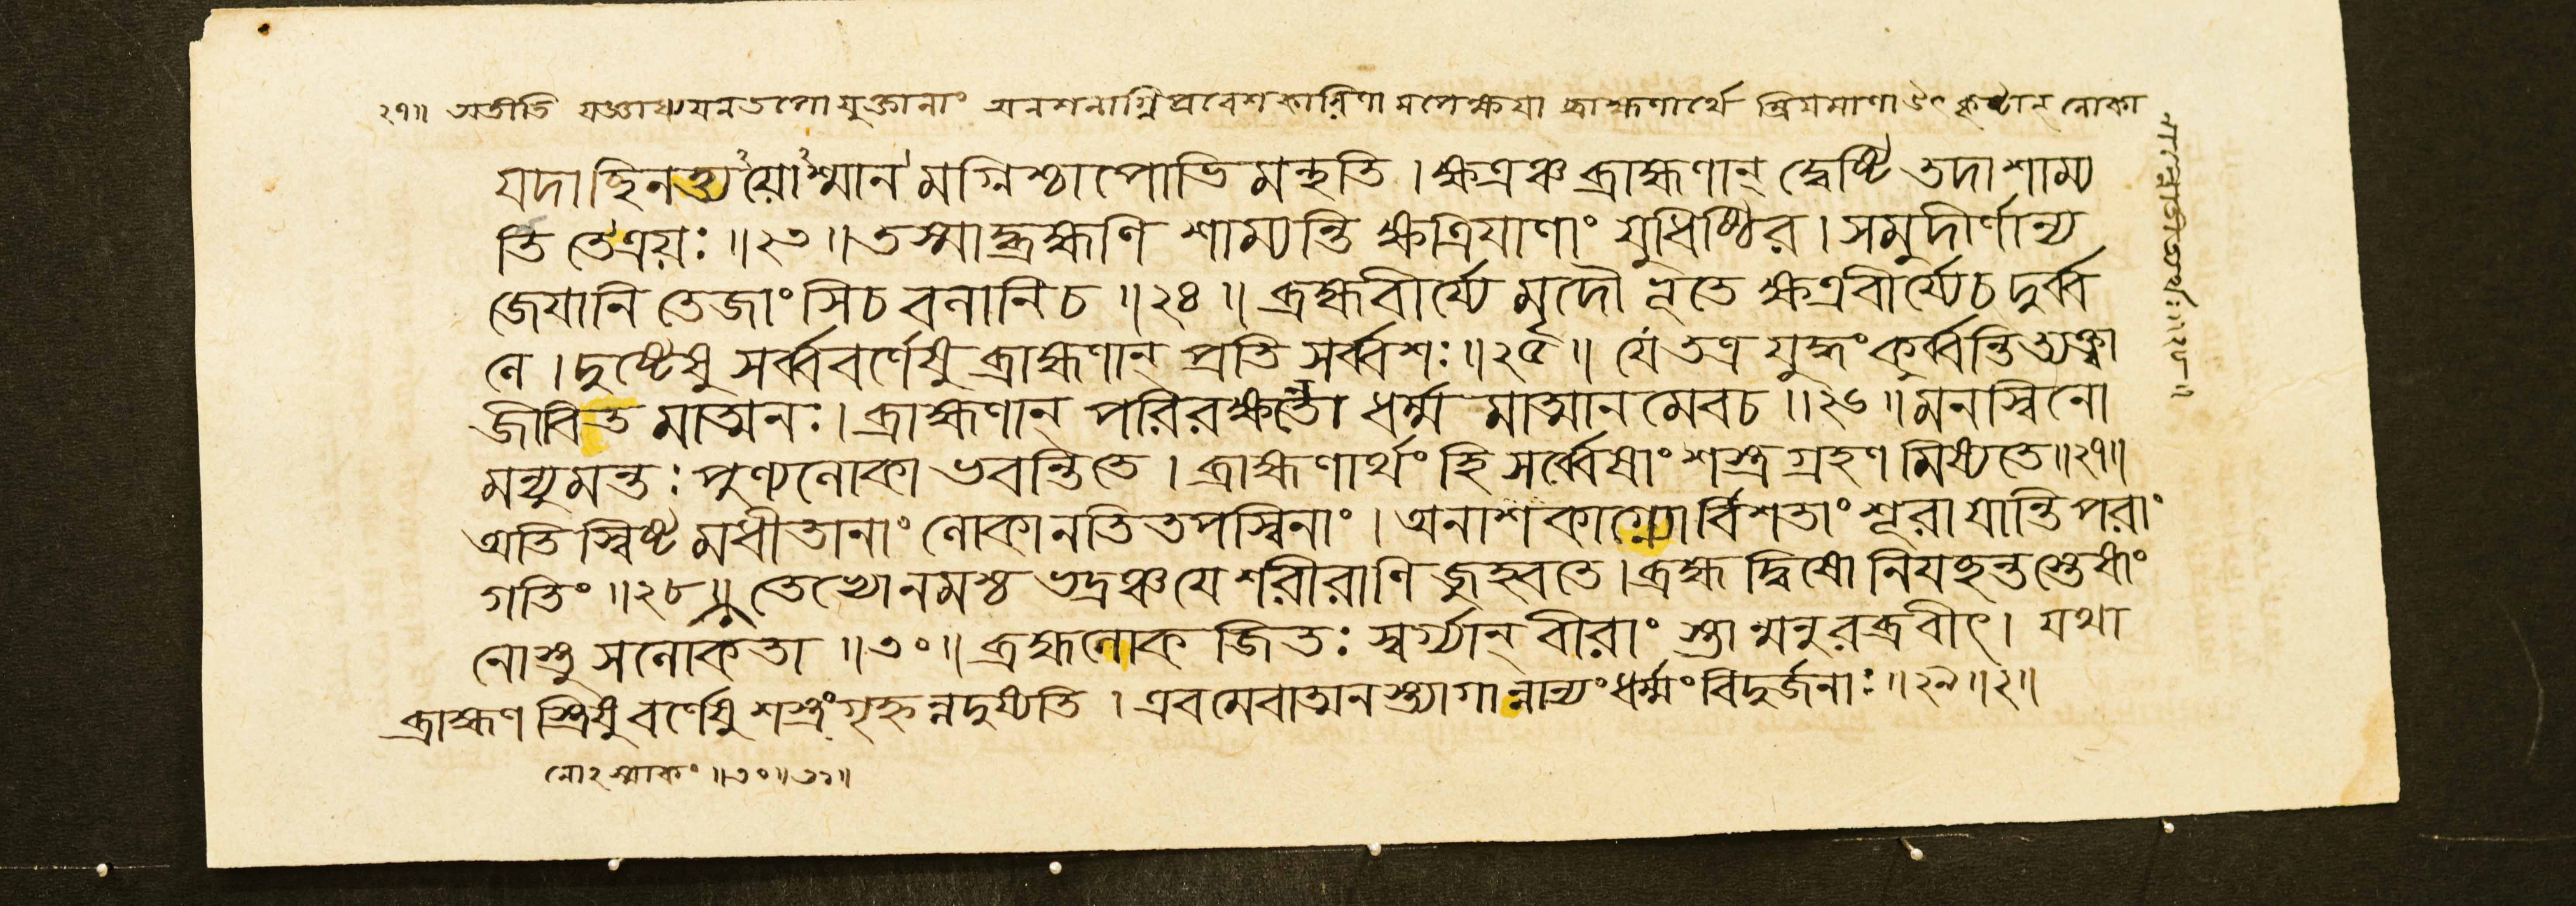 ২৭॥ অতীতি যজ্ঞাধ্যয়নতপোযুক্তানাং অনশনাগ্নিপ্রবেশকারিণামপেক্ষয়া ব্রাহ্মণার্থে ম্রিয়মাণা উৎকৃষ্টান্ লোকা
ন্প্রাপ্নুবন্তীত্যর্থঃ॥২৮॥
যদা ছিনত্ত্যয়োশ্মানমগ্নিশ্চাপোভিমন্থতি । ক্ষত্রঞ্চ ব্রাহ্মণান্ দ্বেষ্টি তদা শাম্য
তি তেত্রয়ঃ ॥২৩॥ তস্মাদ্ব্রহ্মণি শাম্যন্তি ক্ষত্রিয়াণাং যুধিষ্ঠির । সমুদীর্ণান্য
জেয়ানি তেজাংসিচ বলানিচ ॥২৪॥ ব্রহ্মবীর্য্যে মৃদৌভূতে ক্ষত্রবীর্য্যেচ দুর্ব্ব
লে । দুষ্টেষু সর্ব্ববর্ণেষু ব্রাহ্মণান্ প্রতি সর্ব্বশঃ ॥২৫॥ যে তত্র যুদ্ধং কুর্ব্বন্তি ত্যক্ত্বা
জীবিতমাত্মনঃ । ব্রাহ্মণান্ পরিরক্ষন্তো ধর্ম্ম মাত্মানমেবচ ॥২৬॥ মনস্বিনো
মন্যুমন্তঃ পুণ্যলোকা ভবন্তি তে । ব্রাহ্মণার্থং হি সর্ব্বেষাং শস্ত্রগ্রহণমিষ্যতে॥২৭॥
অতি স্বিষ্টমধীতানাং লোকানতি তপস্বিনাং । অনাশকাগ্ন্যোর্বিশতাং শূরা যান্তি পরাং
গতিং ॥২৮॥ তেভ্যোনমশ্চ ভদ্রঞ্চ যে শরীরাণি জুহ্বতে । ব্রহ্মদ্বিষো নিযচ্ছন্তস্তেষাং
নোস্তু সলোকতা ॥৩০॥ ব্রহ্মলোকজিতঃ স্বর্গ্যান্ বীরাংস্তান্মনুরব্রবীৎ । যথা
ব্রাহ্মণস্ত্রিষু বর্ণেষু শস্ত্রং গৃহ্নন্নদুষ্যতি । এবমেবাত্মনস্ত্যাগান্নান্যং ধর্ম্মং বিদুর্জনাঃ ॥২৯॥২॥
নোঽস্মাকং ॥৩০॥৩১॥